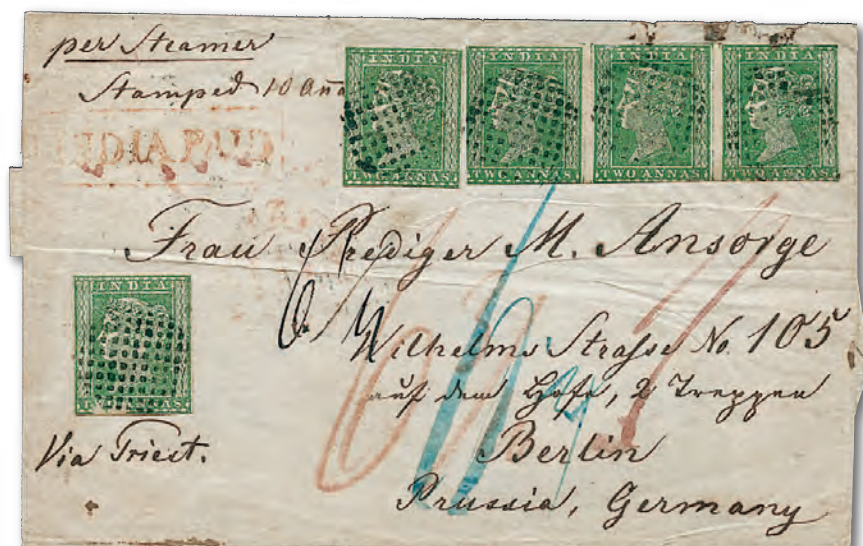 per Steamer
Stamped 10 Anas
INDIA PAID
INDIA
TWO ANNAS
INDIA
TWO ANNAS
INDIA
TWO ANNAS
INDIA
TWO ANNAS
Frau Prediger M. Ansorge
Wilhelms Straſse No. 105
auf dem Hofe, 2 Treppen
Berlin
Prussia, Germany
INDIA
TWO ANNAS
Via Triest.